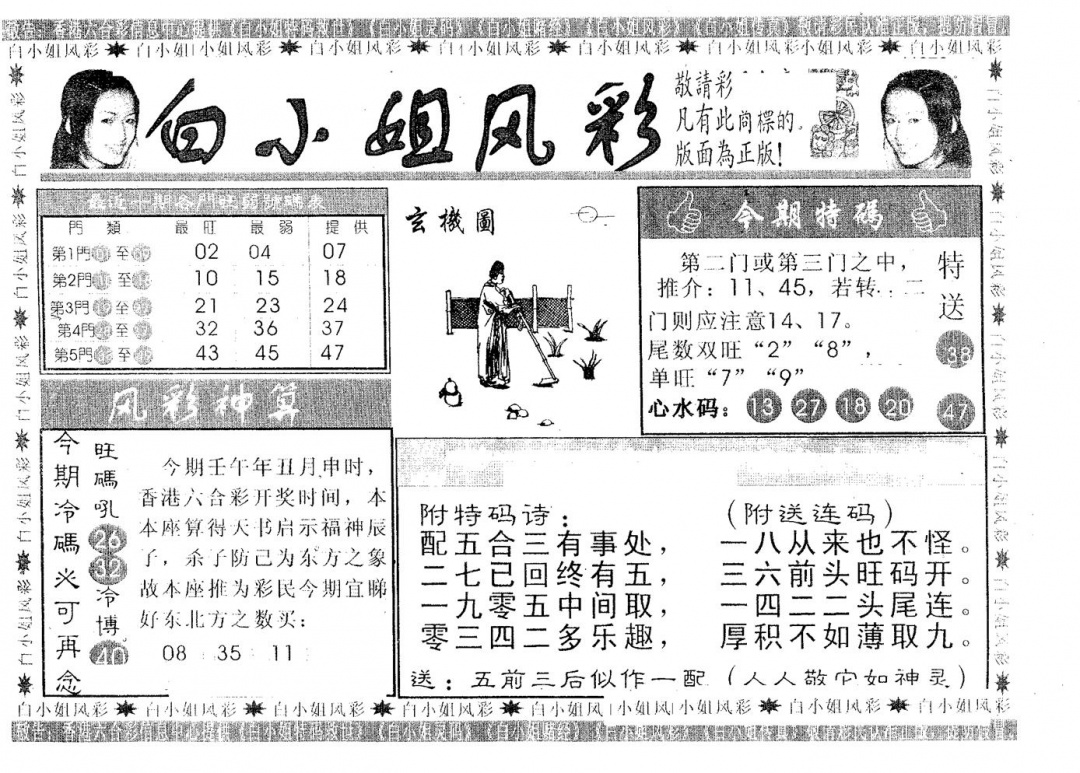 敬告：香港六合彩信息中心提供《白小姐特码救世》《白小姐灵码》《白小姐赌经》《白小姐风彩》《白小姐传真》敬请彩民认准正版，提防假冒
白小姐风彩 白小姐风彩 白小姐风彩 白小姐风彩 白小姐风彩 白小姐风彩 白小姐风彩
白小姐风彩
敬請彩
凡有此尚標的
版面為正版!
最近十期各門旺弱號碼表
門 類 最 旺 最 弱 提 供
第1門 至 02 04 07
第2門 至 10 15 18
第3門 至 21 23 24
第4門 至 32 36 37
第5門 至 43 45 47
玄機圖
今期特碼
第二门或第三门之中，
推介：11、45，若转 二
门则应注意14、17。
尾数双旺“2”“8”，
单旺“7”“9”
心水码：13 27 18 20
特送 38 47
风彩神算
今期冷碼 可再念
旺碼吼 26 32 冷博 40
今期壬午年丑月申时，
香港六合彩开奖时间，本
本座算得天书启示福神辰
子，杀子防己为东方之象
故本座推为彩民今期宜睇
好东北方之数买：
08 35 11
附特码诗：
配五合三有事处，
二七已回终有五，
一九零五中间取，
零三四二多乐趣，
（附送连码）
一八从来也不怪。
三六前头旺码开。
一四二二头尾连。
厚积不如薄取九。
送：五前三后似作一配（人人敬它如神灵）
白小姐风彩 白小姐风彩 白小姐风彩 白小姐风彩 白小姐风 小姐风 小姐风彩 白小姐风彩 白小姐风彩